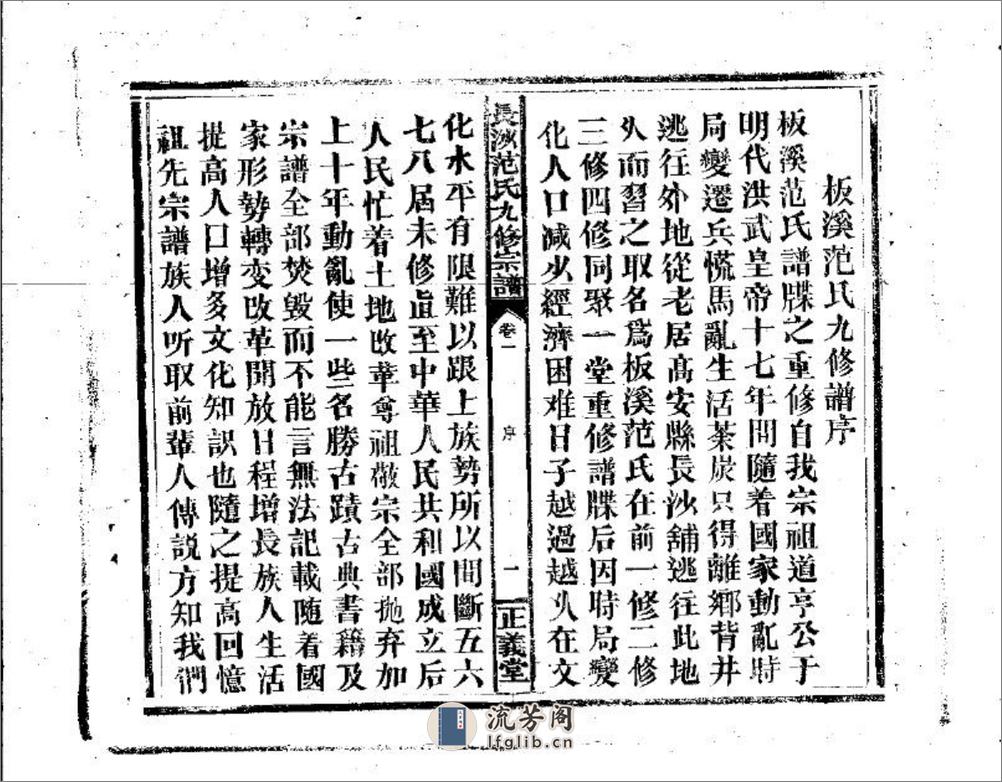 板溪范氏九修譜序
板溪范氏譜牒之重修自我宗祖道亨公于
明代洪武皇帝十七年間隨着國家動亂時
局變遷兵慌馬亂生活荼炭只得離鄉背井
逃往外地從老居髙安縣長沙舖逃往此地
乆而習之取名爲板溪范氏在前一修二修
三修四修同聚一堂重修譜牒后因時局變
化人口减少經濟困难日子越過越乆在文
長沙范氏九修宗譜
卷一
序
一
正義堂
化水平有限難以跟上族勢所以間斷五六
七八屆未修直至中華人民共和國成立后
人民忙着土地改革尊祖敬宗全部抛弃加
上十年動亂使一些名勝古蹟古典書籍及
宗譜全部焚毀而不能言無法記載随着國
家形勢轉变改革開放日程增長族人生活
提高人口增多文化知識也隨之提高回憶
祖先宗譜族人听取前輩人傳説方知我們
流芳阁
lfglib.cn